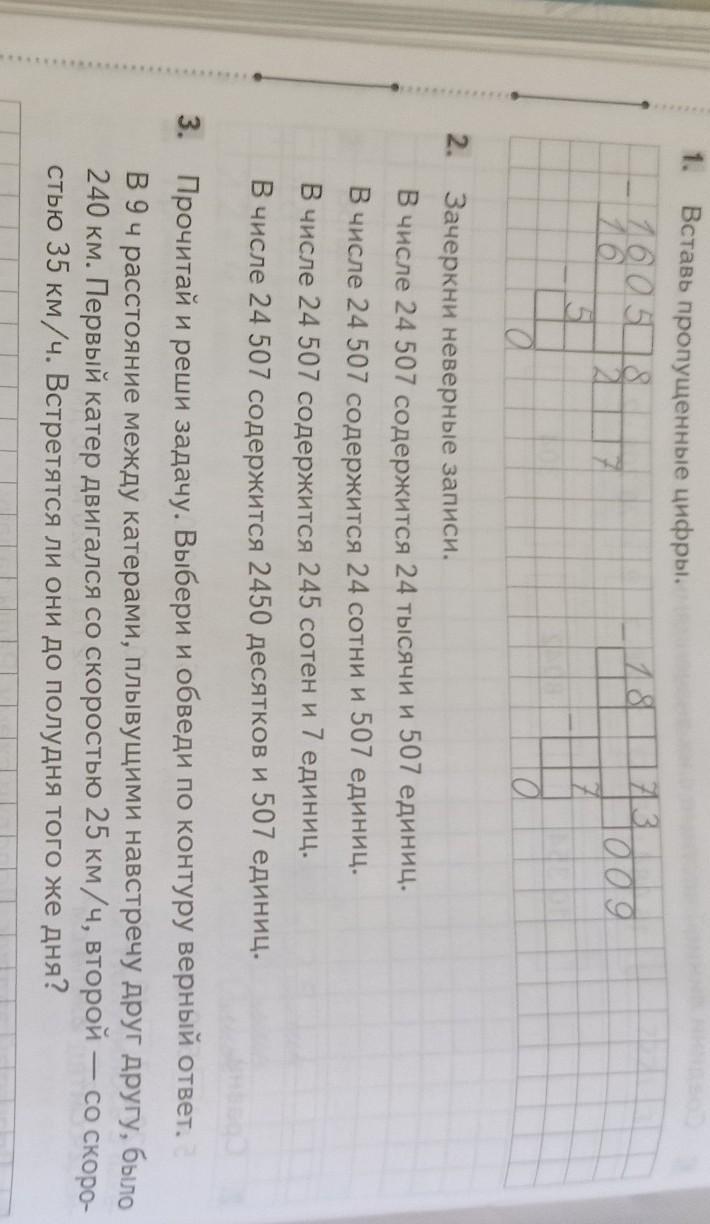 1. Вставь пропущенные цифры.
− 1605 8 − 18 73
16 2 7 009
− 5 − 7
0 0
2. Зачеркни неверные записи.
В числе 24 507 содержится 24 тысячи и 507 единиц.
В числе 24 507 содержится 24 сотни и 507 единиц.
В числе 24 507 содержится 245 сотен и 7 единиц.
В числе 24 507 содержится 2450 десятков и 507 единиц.
3. Прочитай и реши задачу. Выбери и обведи по контуру верный ответ.
В 9 ч расстояние между катерами, плывущими навстречу друг другу, было
240 км. Первый катер двигался со скоростью 25 км/ч, второй — со скоро-
стью 35 км/ч. Встретятся ли они до полудня того же дня?